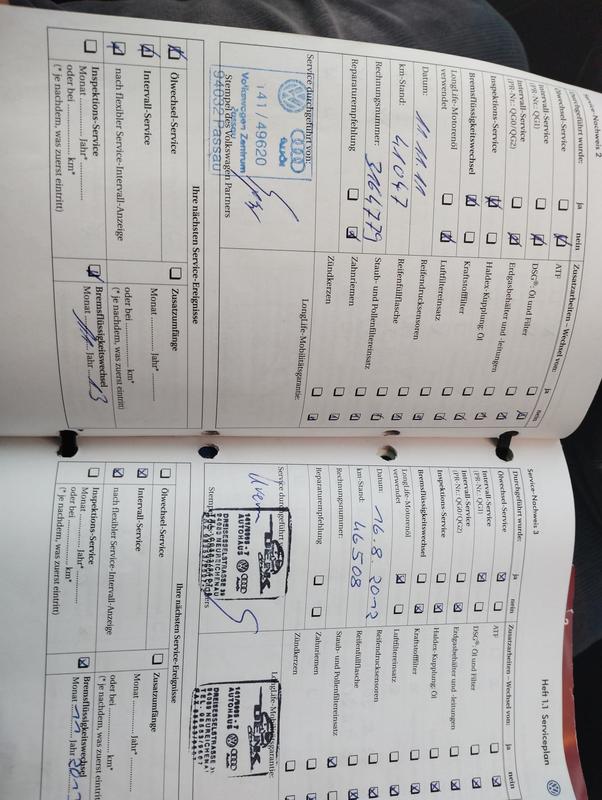 Service-Nachweis 2
Durchgeführt wurde: ja nein
Ölwechsel-Service
Intervall-Service
(PR-Nr.: QG1)
Intervall-Service
(PR-Nr.: QG0/QG2)
Inspektions-Service
Bremsflüssigkeitswechsel
LongLife-Motorenöl
verwendet
Datum: 11.11.11
km-Stand: 41047
Rechnungsnummer: 3164779
Reparaturempfehlung
Service durchgeführt von:
Audi
141/49620
Volkswagen Zentrum
Passau
94032 Passau
Stempel des Volkswagen Partners
Zusatzarbeiten – Wechsel von: ja nein
ATF
DSG®: Öl und Filter
Erdgasbehälter und -leitungen
Haldex-Kupplung: Öl
Kraftstofffilter
Luftfiltereinsatz
Reifendrucksensoren
Reifenfüllflasche
Staub- und Pollenfiltereinsatz
Zahnriemen
Zündkerzen
LongLife-Mobilitätsgarantie:
Ihre nächsten Service-Ereignisse
Ölwechsel-Service
Intervall-Service
nach flexibler Service-Intervall-Anzeige
Inspektions-Service
Monat ............ Jahr* ............
oder bei ............ km*
(* je nachdem, was zuerst eintritt)
Zusatzumfänge
Monat ............ Jahr* ............
oder bei ............ km*
(* je nachdem, was zuerst eintritt)
Bremsflüssigkeitswechsel
Monat 11 Jahr 13
Heft 1.1 Serviceplan
Service-Nachweis 3
Durchgeführt wurde: ja nein
Ölwechsel-Service
Intervall-Service
(PR-Nr.: QG1)
Intervall-Service
(PR-Nr.: QG0/QG2)
Inspektions-Service
Bremsflüssigkeitswechsel
LongLife-Motorenöl
verwendet
Datum: 16.8.2012
km-Stand: 46508
Rechnungsnummer:
Reparaturempfehlung
Service durchgeführt
AUTOHAUS
DREISESSELSTRASSE
Zusatzarbeiten – Wechsel von: ja nein
ATF
DSG®: Öl und Filter
Erdgasbehälter und -leitungen
Haldex-Kupplung: Öl
Kraftstofffilter
Luftfiltereinsatz
Reifendrucksensoren
Reifenfüllflasche
Staub- und Pollenfiltereinsatz
Zahnriemen
Zündkerzen
AUTOHAUS
DREISESSELSTRASSE
Ihre nächsten Service-Ereignisse
Ölwechsel-Service
Intervall-Service
nach flexibler Service-Intervall-Anzeige
Inspektions-Service
Monat ............ Jahr* ............
oder bei ............ km*
(* je nachdem, was zuerst eintritt)
Zusatzumfänge
Monat ............ Jahr* ............
oder bei ............ km*
(* je nachdem, was zuerst eintritt)
Bremsflüssigkeitswechsel
Monat 11 Jahr